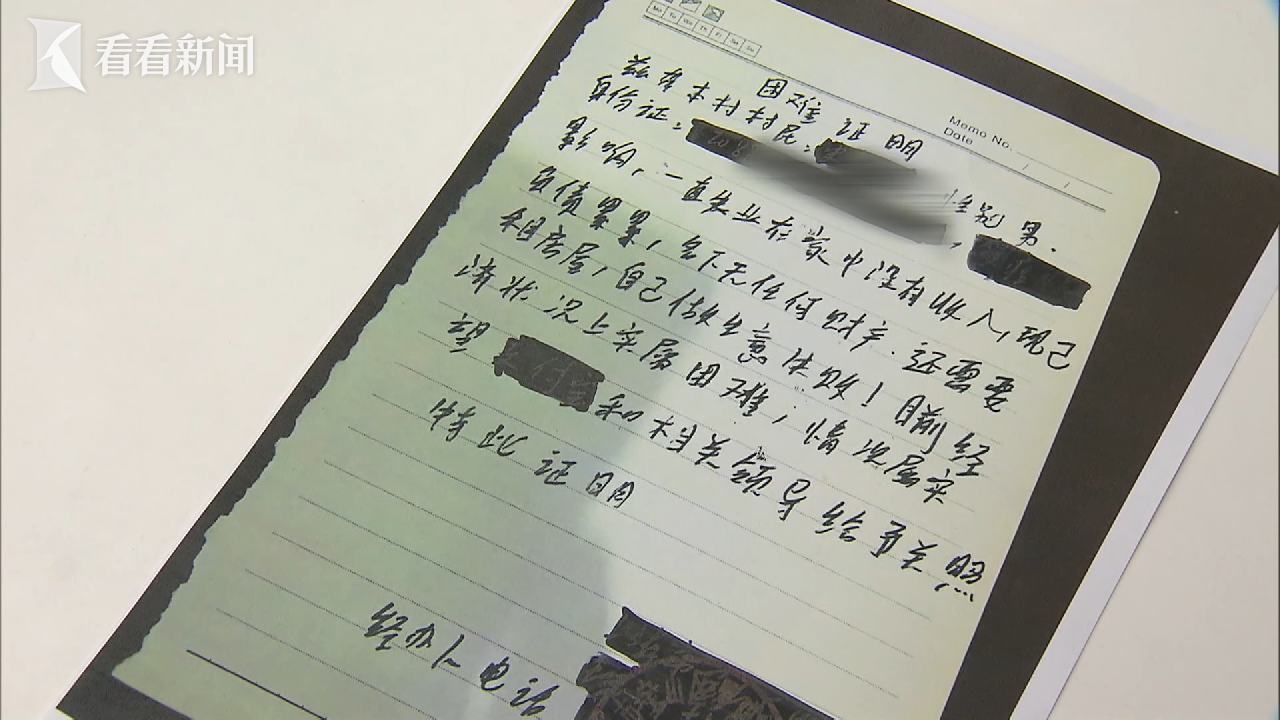 看看新闻
Mo Tu We Th Fr Sa Su
Memo No.
Date / /
困难证明
兹有本村村民: 性别男.
身份证: ,
影响,一直失业在家中没有收人,现已
负债累累,名下无任何财产.还需要
租房屋,自己做生意失败!目前经
济状况上实属困难;情况属实
望 和相关领导给予关照
特此证明
经办人电话